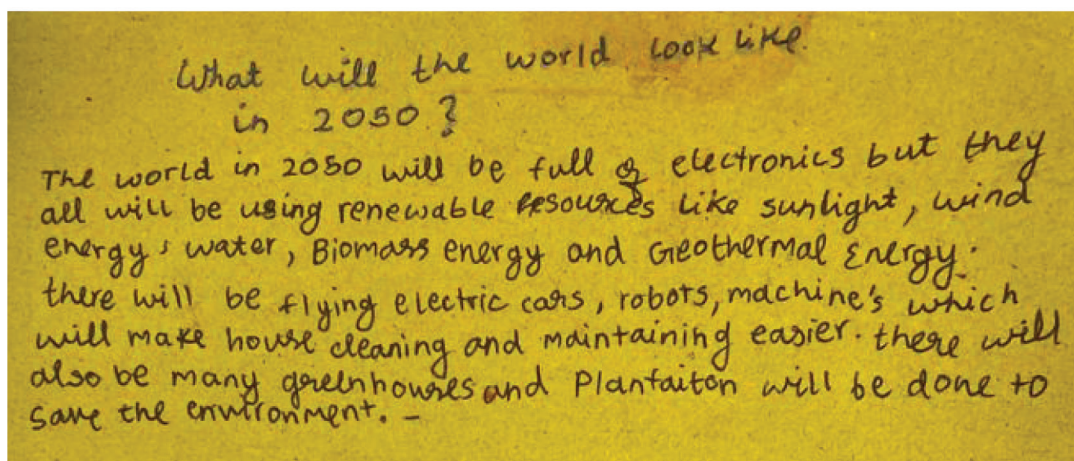 What will the world look like.
in 2050?
The world in 2050 will be full of electronics but they
all will be using renewable resources like sunlight, wind
energy, water, Biomass energy and Geothermal Energy.
there will be flying electric cars, robots, machine's which
will make house cleaning and maintaining easier. there will
also be many greelnhouses and Plantaiton will be done to
save the envuironment. -